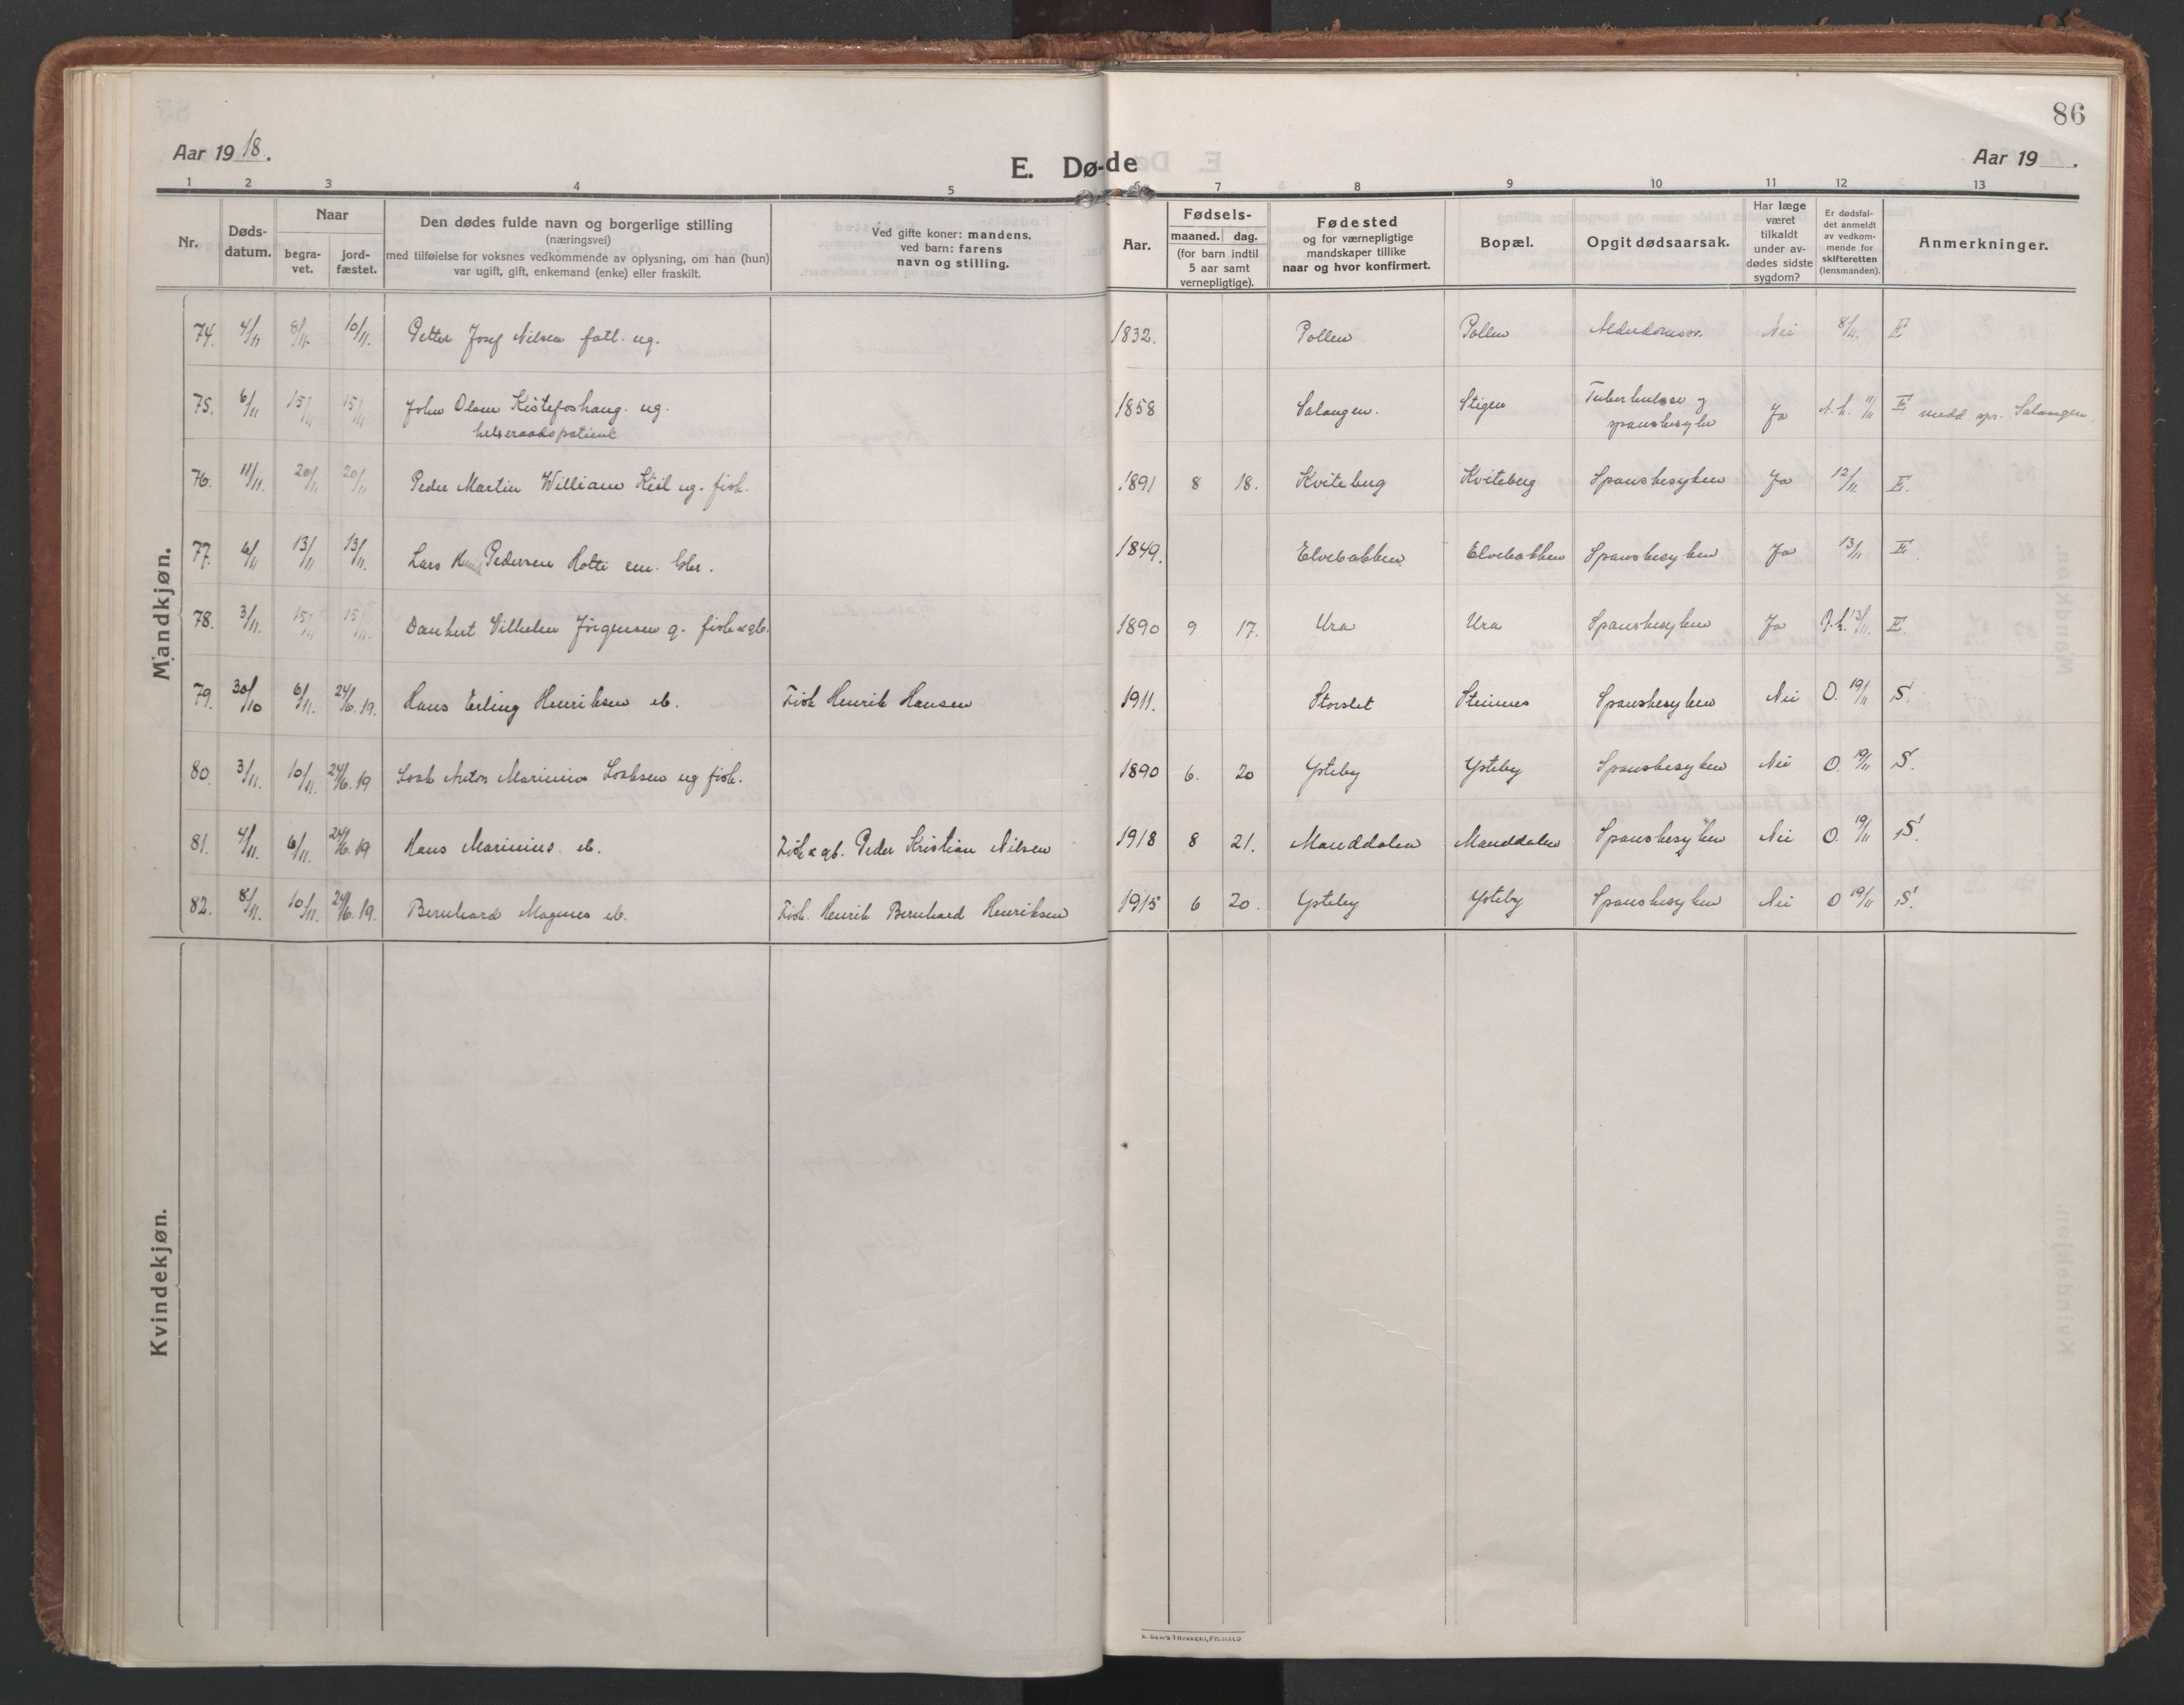 86
Aar 1918.
E. Dø-de
Aar 19 .
1 2 3 4 5 6 7 8 9 10 11 12 13
Nr.
Døds-
datum.
Naar
begra-
vet.
jord-
fæstet.
Den dødes fulde navn og borgerlige stilling
(næringsvei)
med tilføielse for voksnes vedkommende av oplysning, om han (hun)
var ugift, gift, enkemand (enke) eller fraskilt.
Ved gifte koner: mandens,
ved barn: farens
navn og stilling.
Aar.
Fødsels-
maaned. dag.
(for barn indtil
5 aar samt
vernepligtige).
Fødested
og for værnepligtige
mandskaper tillike
naar og hvor konfirmert.
Bopæl.
Opgit dødsaarsak.
Har læge
været
tilkaldt
under av-
dødes sidste
sygdom?
Er dødsfal-
det anmeldt
av vedkom-
mende for
skifteretten
(lensmanden).
Anmerkninger.
Mandkjøn.
74. 4/11 8/11. 10/11. Petter Josef Nilsen fatl. ug. 1832. Pollen Pollen Nei 8/11. E
75. 6/11 15/11 15/11 John Olsen Kistefoshaug. ug. 1858 Salangen. Stigen Tuberkulose og Ja 11/11 E medd spr. Salangen
helseraadspatient spanskesyke
76. 11/11. 20/11 20/11 Peder Martin William Kiil ug. fisk. 1891 8 18. Kviteberg Kviteberg Spanskesyken Ja 12/11. E.
77. 6/11 13/11 13/11. Lars Henrik Pedersen Holti em. 1849. Elvebakken Elvebakken Spanskesyken Ja 13/11 E.
78. 3/11. 15/11 15/11. Danhert Vilhelm Jörgensen g. fisk & gb. 1890 9 17. Ura Ura Spanskesyken Ja 13/11. E.
79. 30/10 6/11. 24/6. 19. Hans Erling Henriksen eb. Fisk Henrik Hansen 1911. Storslet Steinnes Spanskesyken Nei O. 19/11 S.
80. 3/11. 10/11. 24/6. 19 Isak Anton Marinius Isaksen ug fisk. 1890 6. 20 Ysteby Ysteby Spanskesyken Nei O. 19/11 S.
81. 4/11. 6/11. 24/6. 19 Hans Marinius eb. Fisk & gb. Peder Kristian Nilsen 1918 8 21. Manddalen Manddalen Spanskesyken Nei O. 19/11 S.
82. 8/11. 10/11. 24/6. 19. Bernhard Magnus eb. Fisk. Henrik Bernhard Henriksen 1915 6 20. Ysteby Ysteby Spanskesyken Nei O 19/11 S.
Kvindekjøn.